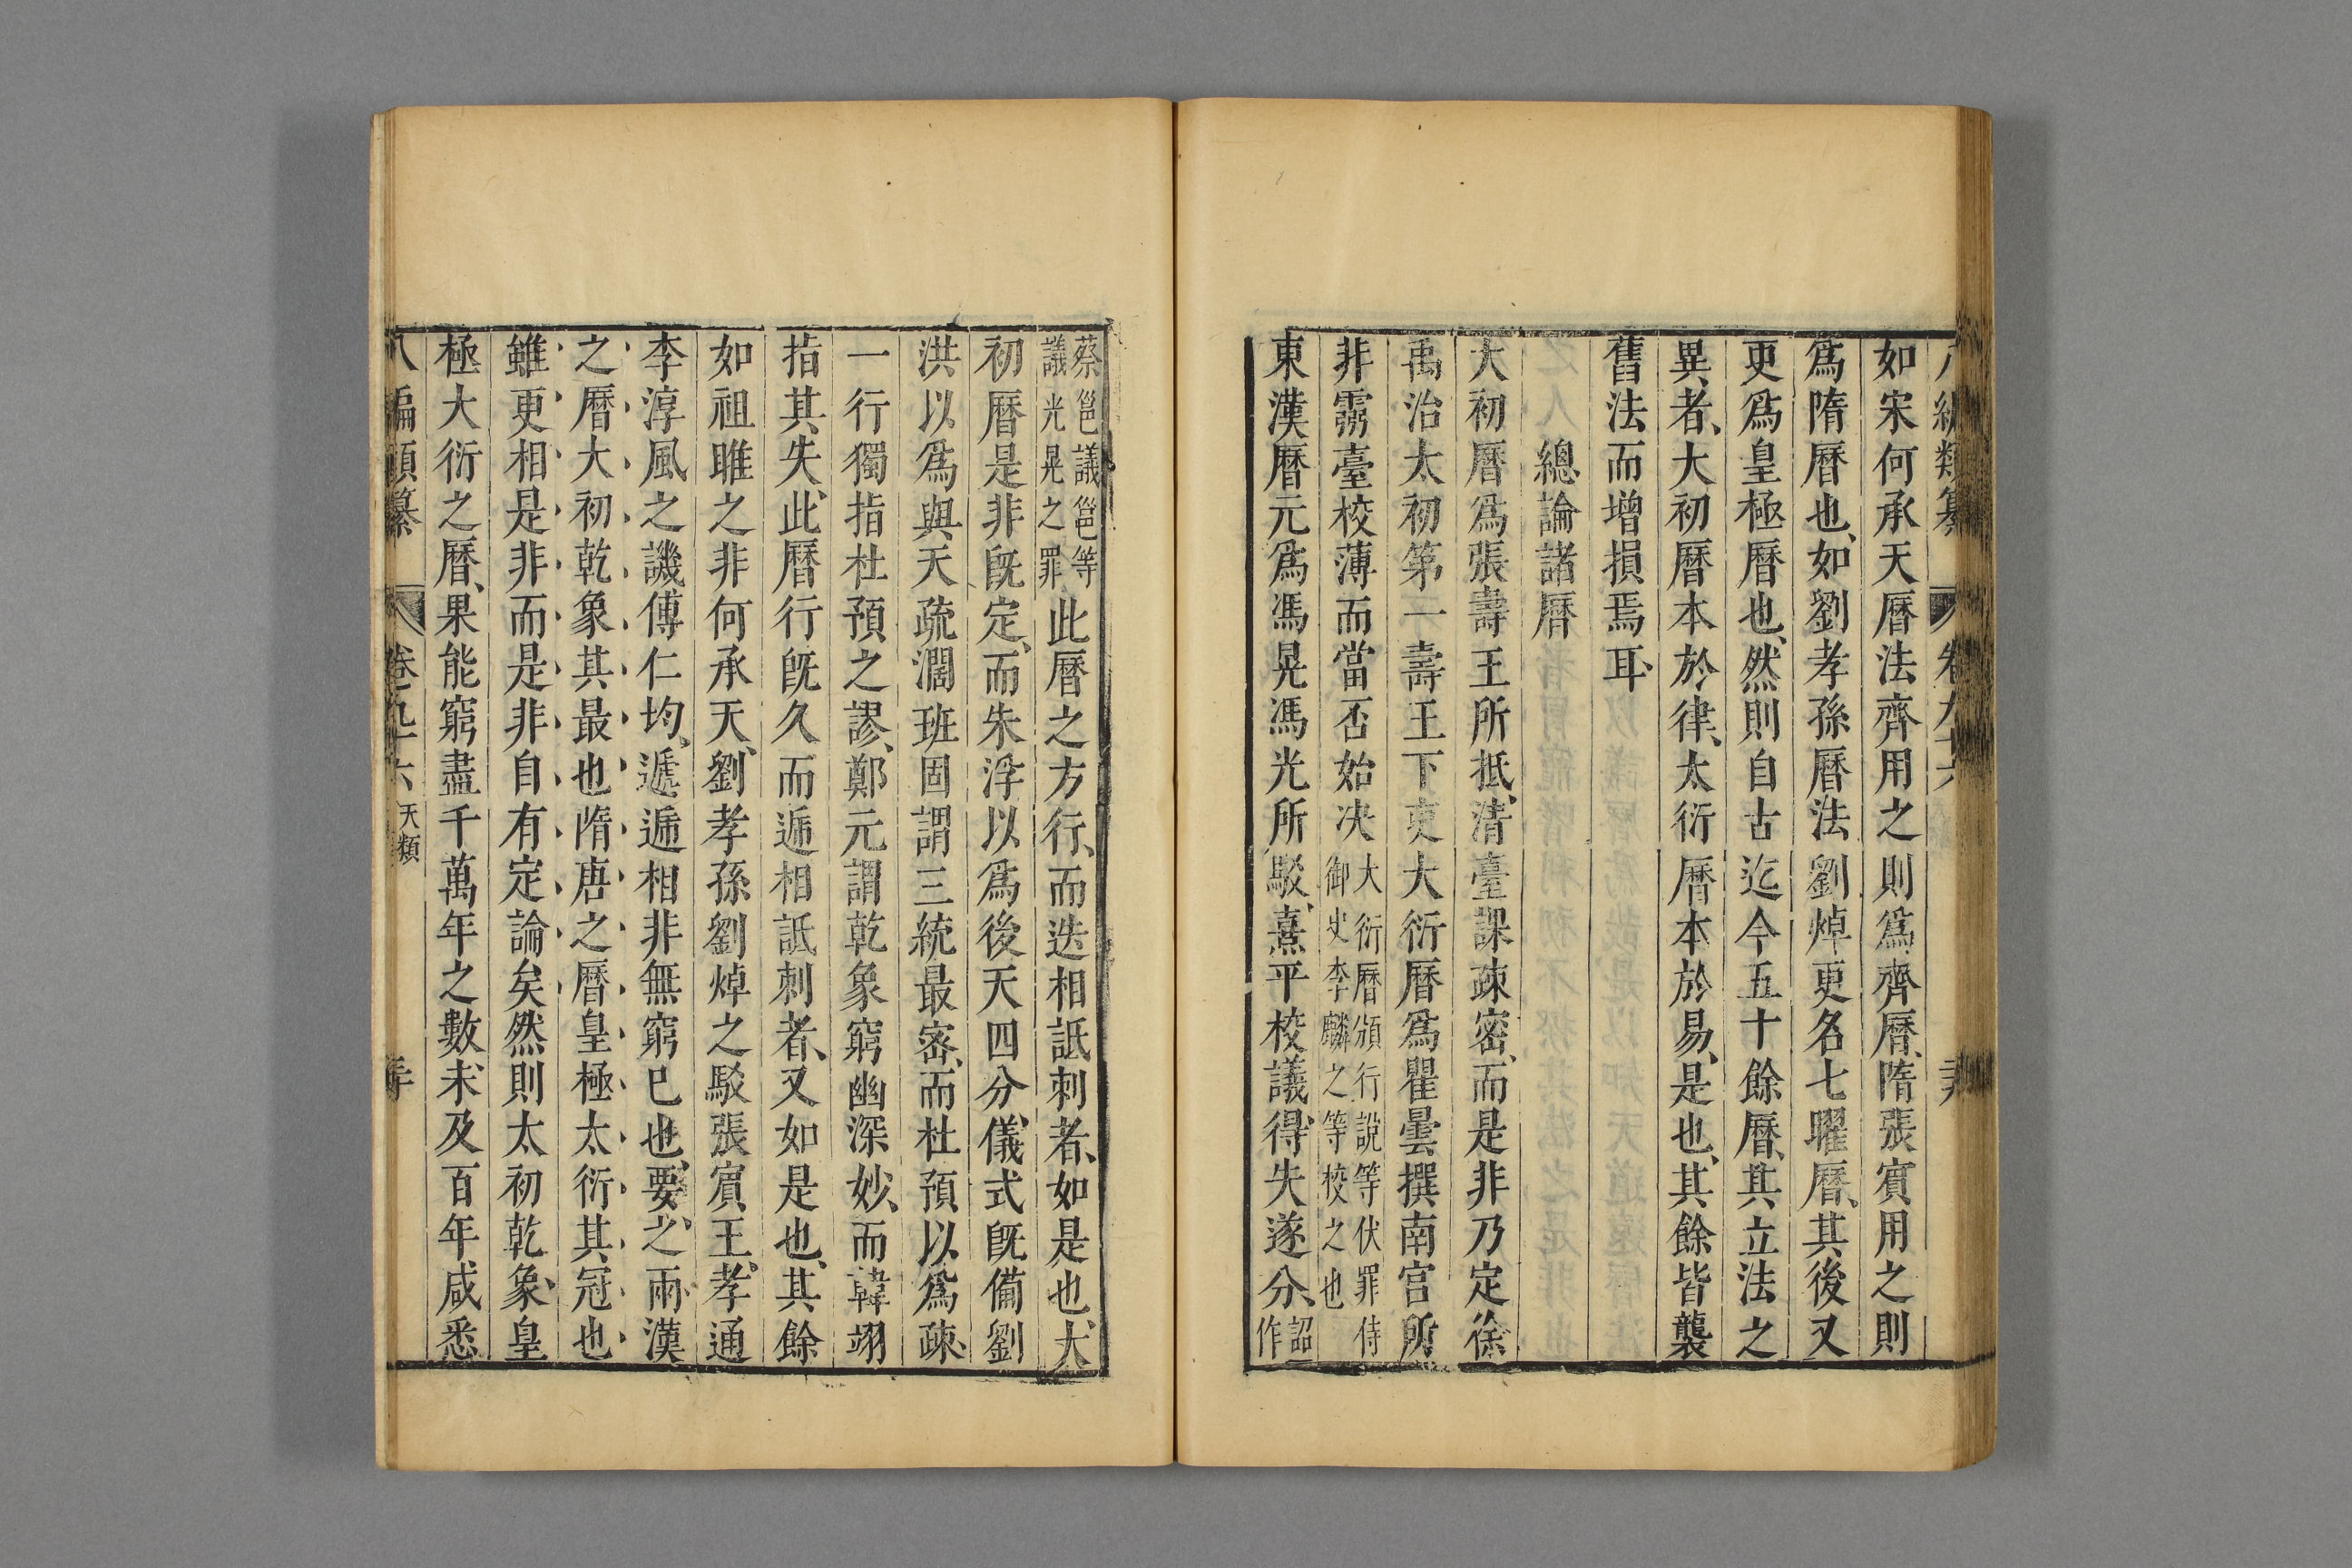 如宋何承天曆法齊用之則爲齊曆、隋張賓用之則
爲隋曆也、如劉孝孫曆法劉焯更名七曜曆、其後又
更爲皇極曆也、然則自古迄今五十餘曆、其立法之
異者、大初曆本於律、太衍曆本於易、是也、其餘皆襲
舊法而增損焉耳、
總論諸曆
大初曆爲張壽王所抵、清臺課疎密、而是非乃定徐
禹治太初第一壽王下吏大衍曆爲瞿曇撰南宫所
非靈臺校薄而當否始决大衍曆頒行説等伏罪侍御史李麟之等校之也
東漢曆元爲馮晃馮光所駁、熹平校議、得失遂分、詔作
蔡邕議邕等議光晃之罪此曆之方行、而迭相詆刺者、如是也、大
初曆是非旣定、而朱浮以爲後天四分、儀式旣備劉
洪以爲與天疏濶班固謂三統最密、而杜預以爲疎、
一行獨指杜預之謬、鄭元謂乾象窮幽深妙、而韓翊
指其失、此曆行旣久而遞相詆刺者、又如是也、其餘
如祖暅之非何承天、劉孝孫劉焯之駁張賓、王孝通
李淳風之譏傅仁均、遞遞相非無窮已也、要之、兩漢
之曆大初乾象其最也隋唐之曆皇極太衍其冠也
雖更相是非而是非自有定論矣然則太初乾象、皇
極大衍之曆、果能窮盡千萬年之數、未及百年咸悉
八編類纂 卷九十六 天類